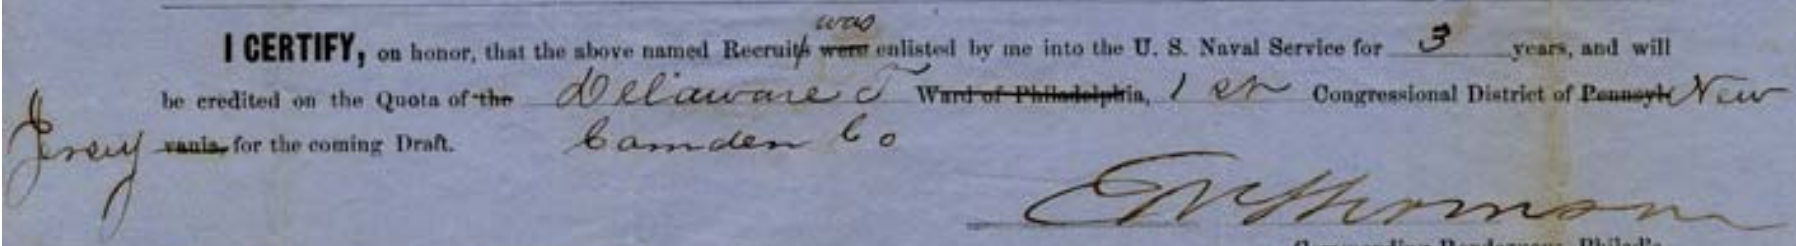 was
I CERTIFY, on honor, that the above named Recruits were enlisted by me into the U. S. Naval Service for 3 years, and will
be credited on the Quota of the Delaware T Ward of Philadelphia, 1 st Congressional District of Pennsyl New
Jersey vania, for the coming Draft. Camden Co
Commanding Rendezvous, Philad'a